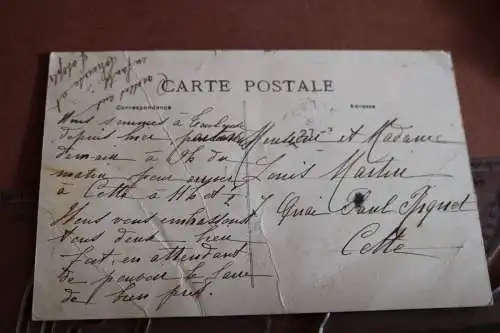 CARTE POSTALE
Correspondance
Adresse
Nous sommes à
depuis hier
demain à 9h du
matin pour
à Cette à 11h et ½
Nous vous embrassons
tous deux bien
fort, en attendant
de pouvoir le faire
de bien près.
Monsieur et Madame
Louis Martin
7 Quai Paul Riquet
Cette